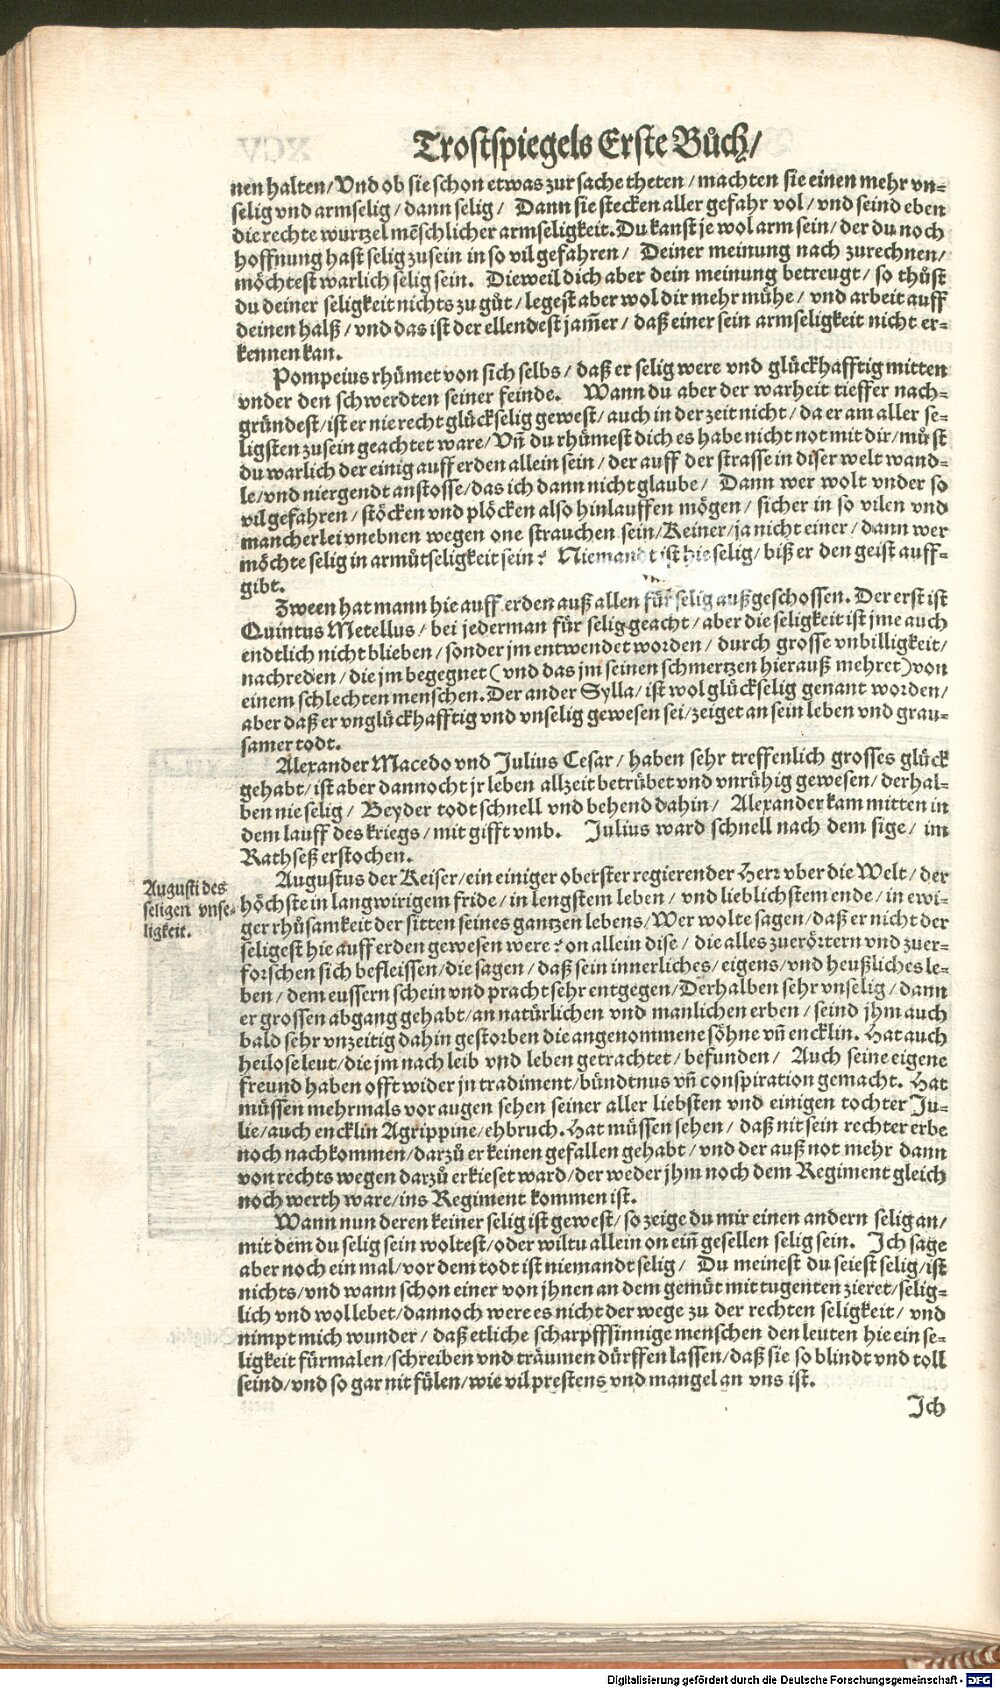 Trostspiegels Erste Bůch/
nen halten/ Vnd ob sie schon etwas zur sache theten/ machten sie einen mehr vn-
selig vnd armselig/ dann selig/ Dann sie stecken aller gefahr vol/ vnd seind eben
die rechte wurtzel mẽschlicher armseligkeit. Du kanst je wol arm sein/ der du noch
hoffnung hast selig zusein in so vil gefahren/ Deiner meinung nach zurechnen/
möchtest warlich selig sein. Dieweil dich aber dein meinung betreugt/ so thůst
du deiner seligkeit nichts zu gůt/ legest aber wol dir mehr mühe/ vnd arbeit auff
deinen halß/ vnd das ist der ellendest jam̃er/ daß einer sein armseligkeit nicht er-
kennen kan.
Pompeius rhümet von sich selbs/ daß er selig were vnd glückhafftig mitten
vnder den schwerdten seiner feinde. Wann du aber der warheit tieffer nach-
gründest/ ist er nie recht glückselig gewest/ auch in der zeit nicht/ da er am aller se-
ligsten zusein geachtet ware/ Vñ du rhümest dich es habe nicht not mit dir/ můst
du warlich der einig auff erden allein sein/ der auff der strasse in diser welt wand-
le/ vnd niergendt anstosse/ das ich dann nicht glaube/ Dann wer wolt vnder so
vil gefahren/ stöcken vnd plöcken also hinlauffen mögen/ sicher in so vilen vnd
mancherlei vnebnen wegen one strauchen sein/ Keiner/ ja nicht einer/ dann wer
möchte selig in armůtseligkeit sein? Niemandt ist hie selig/ biß er den geist auff-
gibt.
Zween hat mann hie auff erden auß allen für selig außgeschossen. Der erst ist
Quintus Metellus/ bei jederman für selig geacht/ aber die seligkeit ist jme auch
endtlich nicht blieben/ sonder jm entwendet worden/ durch grosse vnbilligkeit/
nachreden/ die jm begegnet (vnd das jm seinen schmertzen hierauß mehret) von
einem schlechten menschen. Der ander Sylla/ ist wol glückselig genant worden/
aber daß er vnglückhafftig vnd vnselig gewesen sei/ zeiget an sein leben vnd grau-
samer todt.
Alexander Macedo vnd Julius Cesar/ haben sehr treffenlich grosses glück
gehabt/ ist aber dannocht jr leben allzeit betrübet vnd vnrühig gewesen/ derhal-
ben nie selig/ Beyder todt schnell vnd behend dahin/ Alexander kam mitten in
dem lauff des kriegs/ mit gifft vmb. Julius ward schnell nach dem sige/ im
Rathseß erstochen.
Augusti des
seligen vnse-
ligkeit.
Augustus der Keiser/ ein einiger oberster regierender Herr vber die Welt/ der
höchste in langwirigem fride/ in lengstem leben/ vnd lieblichstem ende/ in ewi-
ger rhůsamkeit der sitten seines gantzen lebens/ Wer wolte sagen/ daß er nicht der
seligest hie auff erden gewesen were? on allein dise/ die alles zuerörtern vnd zuer-
forschen sich befleissen/ die sagen/ daß sein innerliches/ eigens/ vnd heußliches le-
ben/ dem eussern schein vnd pracht sehr entgegen/ Derhalben sehr vnselig/ dann
er grossen abgang gehabt/ an natürlichen vnd manlichen erben/ seind jhm auch
bald sehr vnzeitig dahin gestorben die angenommene söhne vñ encklin. Hat auch
heilose leut/ die jm nach leib vnd leben getrachtet/ befunden/ Auch seine eigene
freund haben offt wider jn tradiment/ bündtnus vñ conspiration gemacht. Hat
müssen mehrmals vor augen sehen seiner aller liebsten vnd einigen tochter Ju-
lie/ auch encklin Agrippine/ ehbruch. Hat müssen sehen/ daß nit sein rechter erbe
noch nachkommen/ darzů er keinen gefallen gehabt/ vnd der auß not mehr dann
von rechts wegen darzů erkieset ward/ der weder jhm noch dem Regiment gleich
noch werth ware/ ins Regiment kommen ist.
Wann nun deren keiner selig ist gewest/ so zeige du mir einen andern selig an/
mit dem du selig sein woltest/ oder wiltu allein on eiñ gesellen selig sein. Ich sage
aber noch ein mal/ vor dem todt ist niemandt selig/ Du meinest du seiest selig/ ist
nichts/ vnd wann schon einer von jhnen an dem gemüt mit tugenten zieret/ selig-
lich vnd wol lebet/ dannoch were es nicht der wege zu der rechten seligkeit/ vnd
nimpt mich wunder/ daß etliche scharpffsinnige menschen den leuten hie ein se-
ligkeit fürmalen/ schreiben vnd träumen dürffen lassen/ daß sie so blindt vnd toll
seind/ vnd so gar nit fülen/ wie vil prestens vnd mangel an vns ist.
Ich
Digitalisierung gefördert durch die Deutsche Forschungsgemeinschaft - DFG